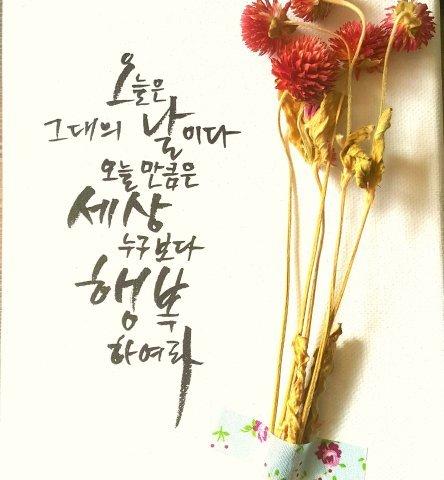 오늘은
그대의 날이다
오늘만큼은
세상
누구보다
행복
하여라